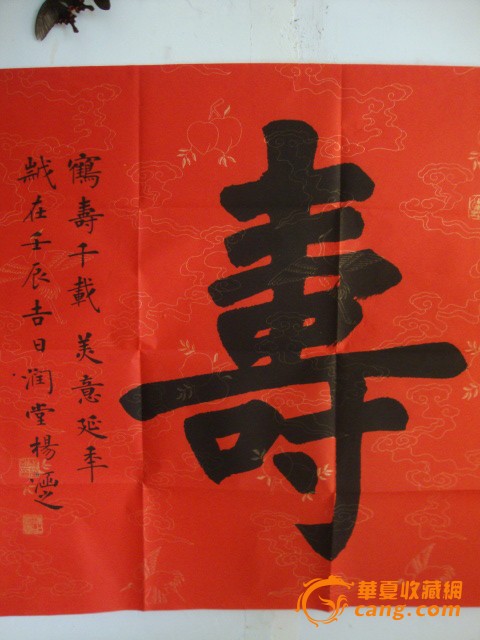 壽
鶴壽千載 美意延年
歲在壬辰吉日潤堂楊涵之
華夏收藏網
cang.com